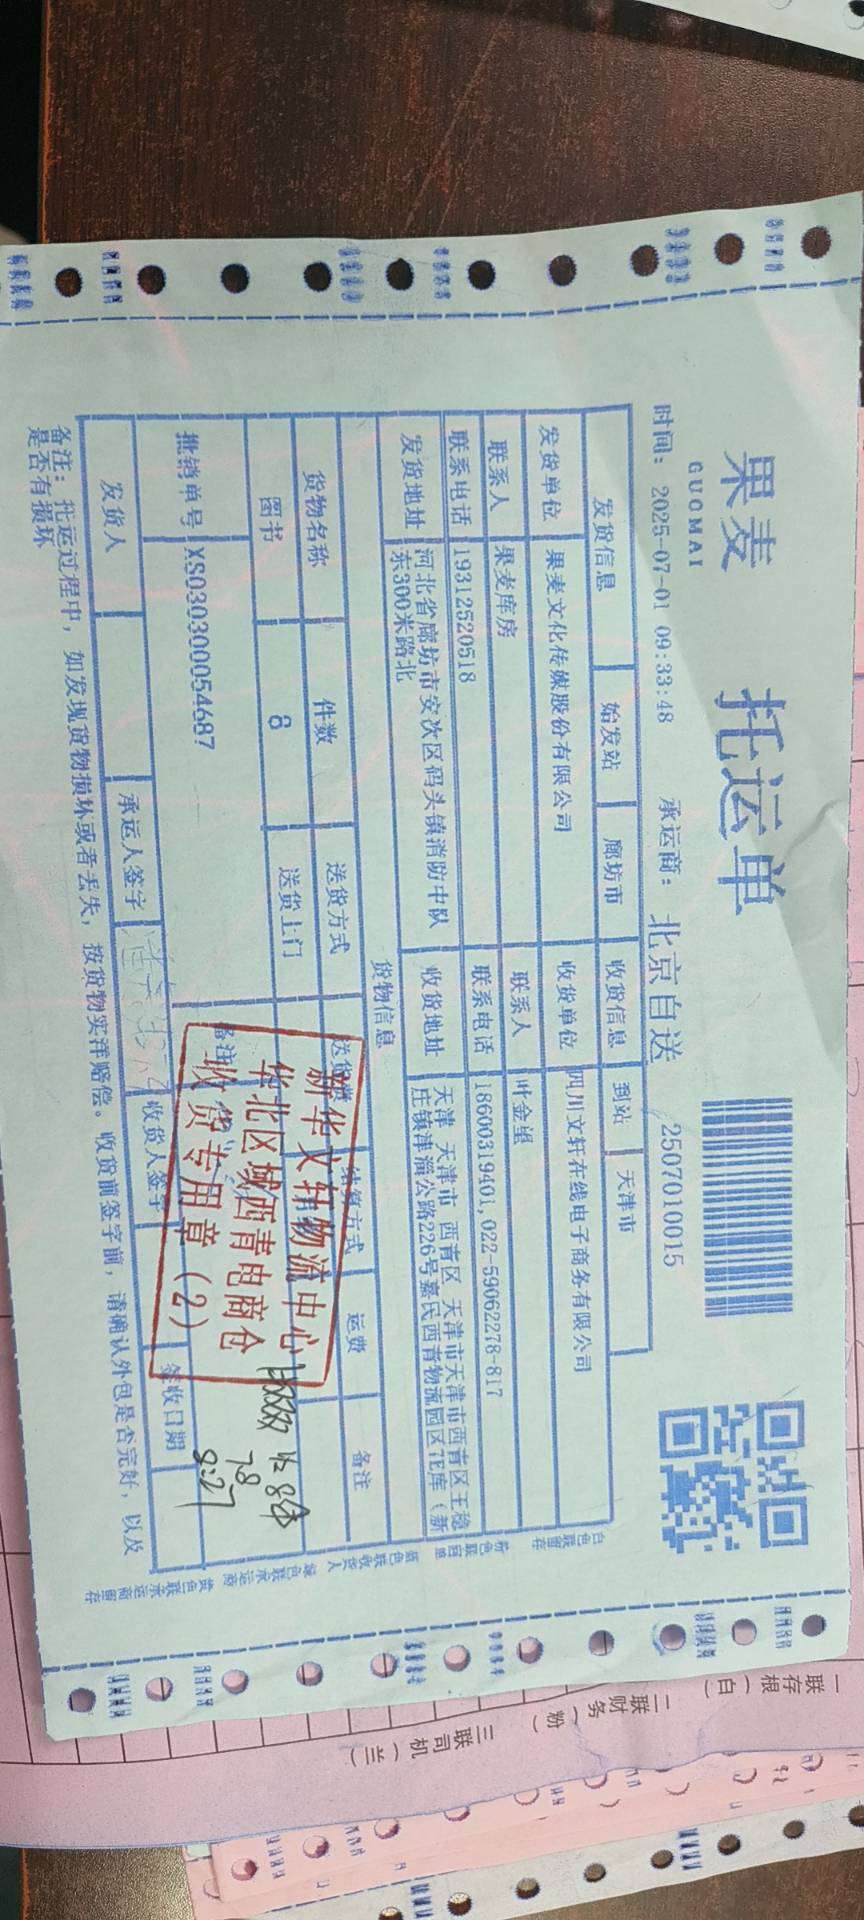 果麦 托运单
GUOMAI
时间: 2025-07-01 09:33:48 承运商: 北京自送 2507010015
发货信息 始发站 廊坊市 收货信息 到站 天津市
发货单位 果麦文化传媒股份有限公司 收货单位 四川文轩在线电子商务有限公司
联系人 果麦库房 联系人 叶金望
联系电话 19312520518 联系电话 18600319401,022-59062278-817
发货地址 河北省廊坊市安次区码头镇消防中队 收货地址 天津 天津市 西青区 天津市天津市西青区王稳
东300米路北 庄镇津淄公路226号嘉民西青物流园区 库(新
货物信息
货物名称 件数 送货方式 结算方式 运费 备注
图书 8 送货上门
批销单号 XS030300054687 备注
新华文轩物流中心
华北区域西青电商仓
收货专用章(2)
8件
7.8
8:27
发货人 承运人签字 收货人签字 签收日期
备注: 托运过程中, 如发现货物损坏或者丢失, 按货物实洋赔偿。收货前签字前, 请确认外包是否完好, 以及
是否有损坏
白色联留存
粉色联回单
蓝色联收货人
绿色联承运商
黄色联承运商留存
一联存根(白)
二联财务(粉)
三联司机(兰)